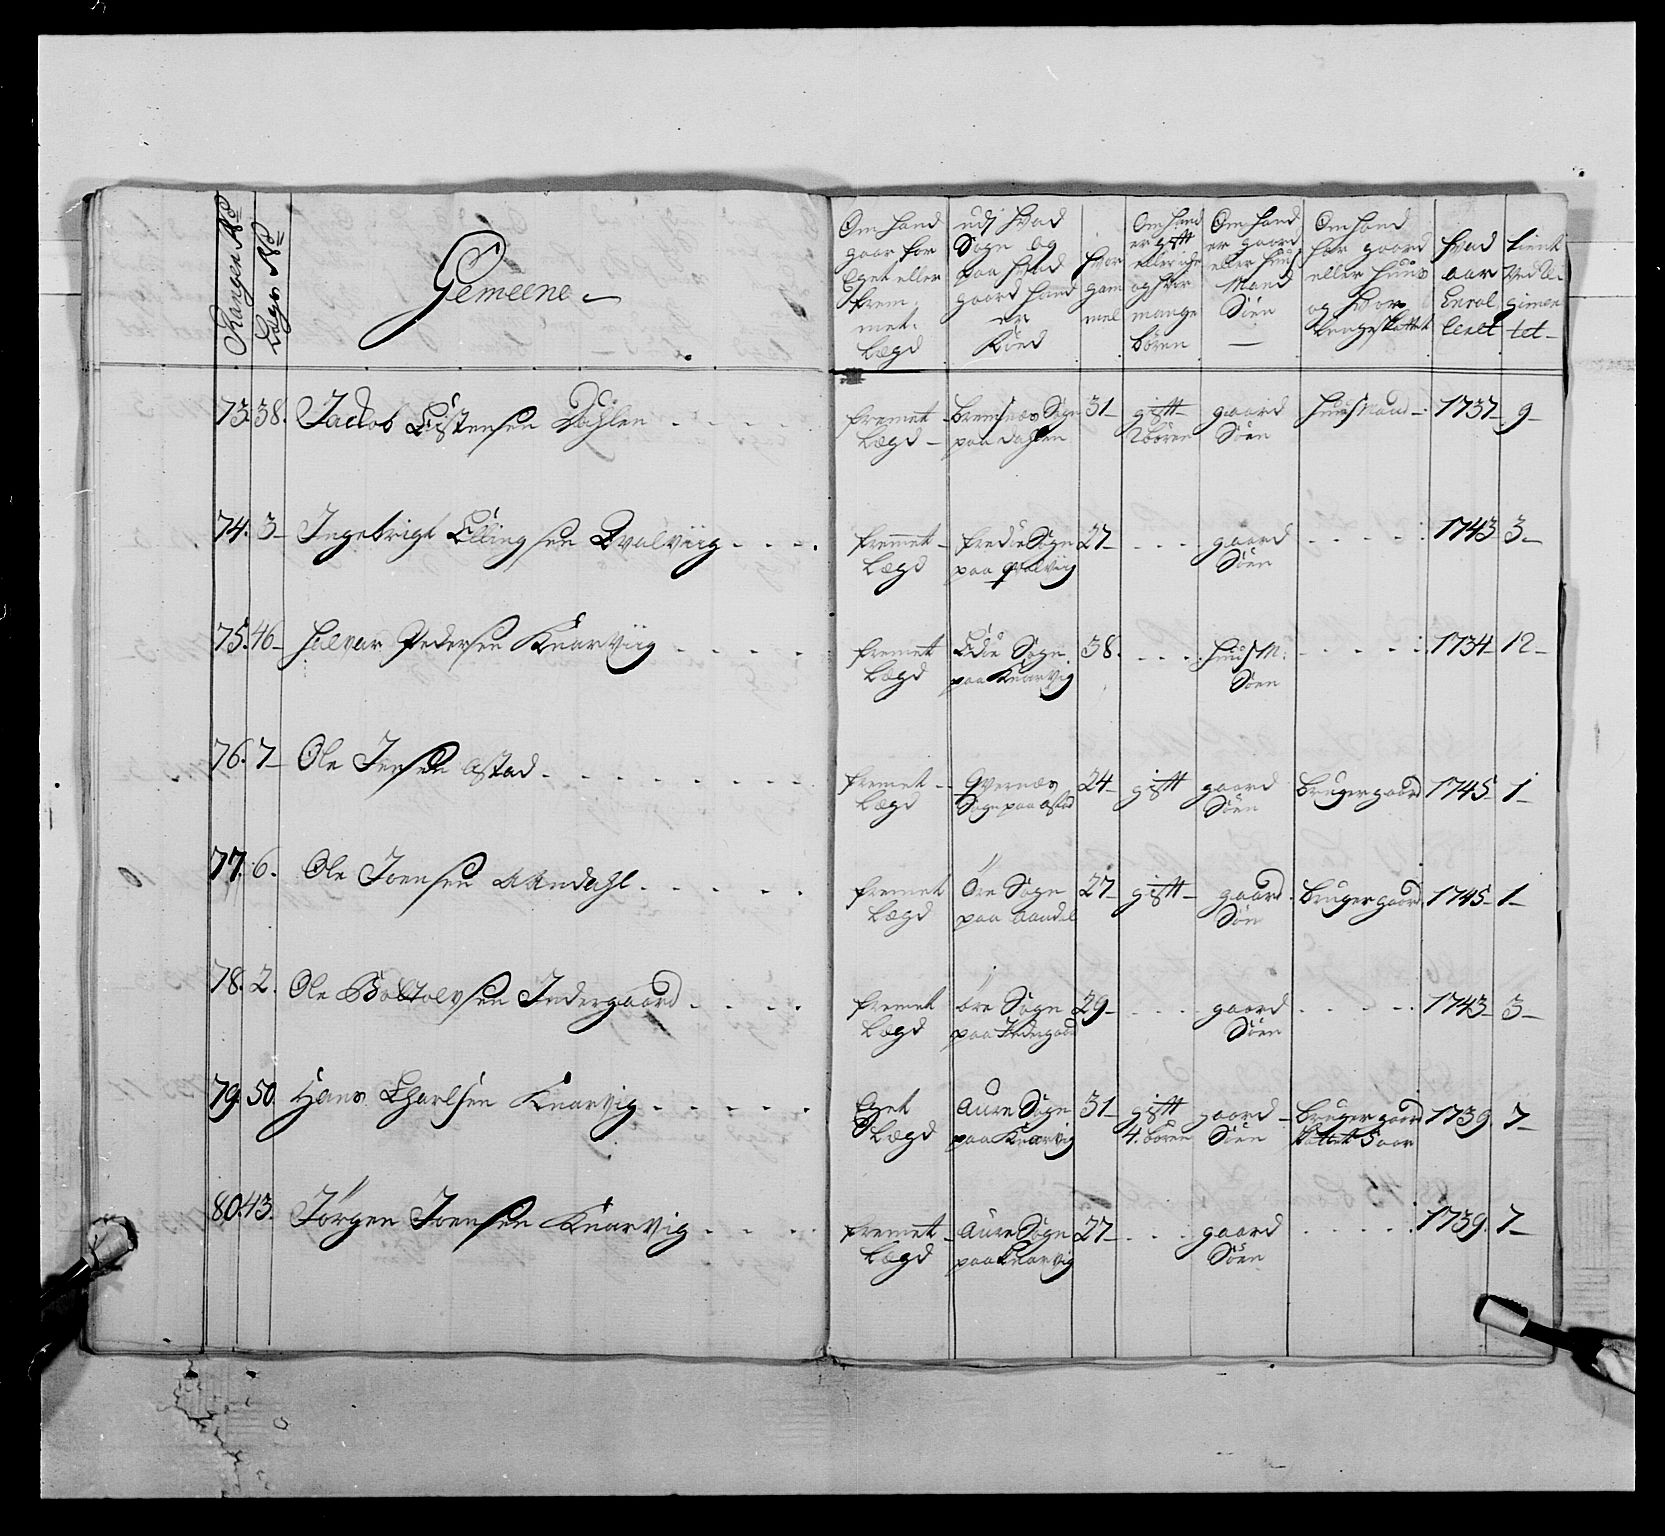 Rangen No
Lægs No
Gemeene
Om hand gaar for Eget eller frem- met Lægd
udj hvad Sogn og paa hvad gaard hand er Föed
hvor gam mel
Om hand er gift eller ey og hvor mange börn
Om hand er gaard eller huus Mand Söen
Om hand har gaard eller Huus og hvor lenge skattet
hvad aar Enrol leret
tient ved Re- gimen tet
73. 38. Jackob Eistensen Dahlen . . . . fremet Lægd Bremsnæs Sogn paa dahlen 31 gift 2 bören gaard Söen HuusMand 1737 9
74. 3 Ingebrigt Ellingsen Qvalviig . . . . fremet Lægd fredøe Sogn paa qvalviig 27 . . . gaard Söen . . . . . 1743 3
75. 46 Halvar Pedersen Knarviig . . . . fremet Lægd Edøe Sogn paa Knarvig 38. . . . HuusM: Söen . . . . 1734 12
76. 7 Ole Jensen Astad . . . . . . . . fremet Lægd Qvernæs Sogn paa Astad 24 gift gaard Söen Bruger gaard 1745 1
77. 6. Ole Joensen AAndahl . . . . . fremet Lægd Öre Sogn paa Aandal 27 gift gaard Söen Bruger gaard 1745 1
78. 2. Ole Bottolvsen Indergaard . . . . fremet Lægd öre Sogn paa Indergaard 29 . . . gaard Söen . . . . . 1743 3
79. 50. Hans Charlsen Knarvig . . . . . Eget Lægd Aure Sogn paa Knarvig 31 gift 4. bören gaard Söen Bruger gaard skattet 5 aar 1739. 7
80. 43. Jörgen Joensen Knarvig . . . . fremet Lægd Aure Sogn paa Knarvig 27 . . . gaard Söen . . . . . 1739. 7